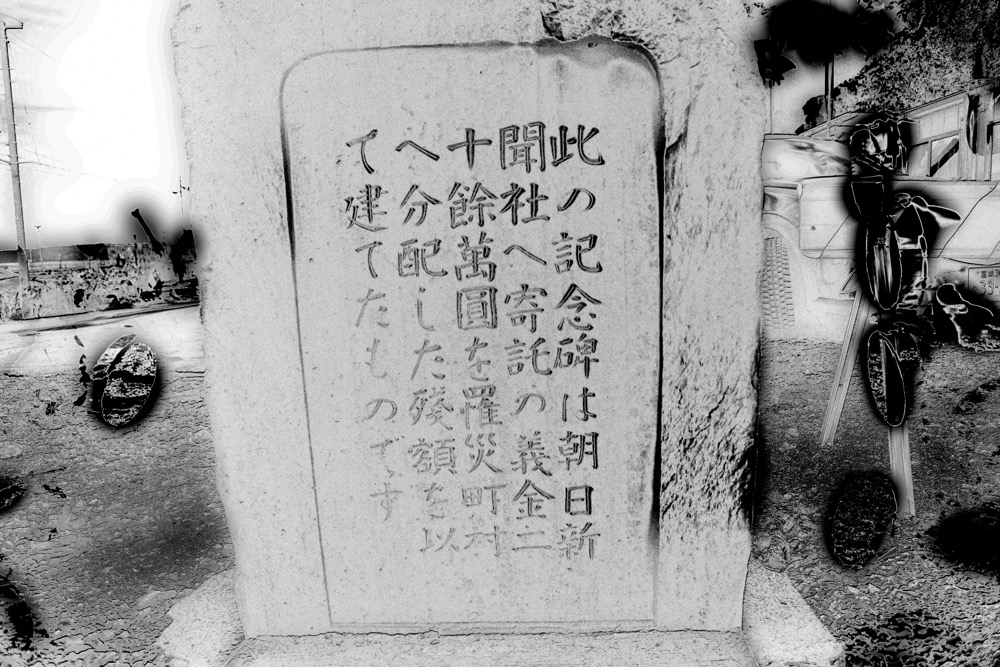 此の記念碑は朝日新
聞社へ寄託の義金二
十餘萬圓を罹災町村
へ分配した殘額を以
て建てたものです